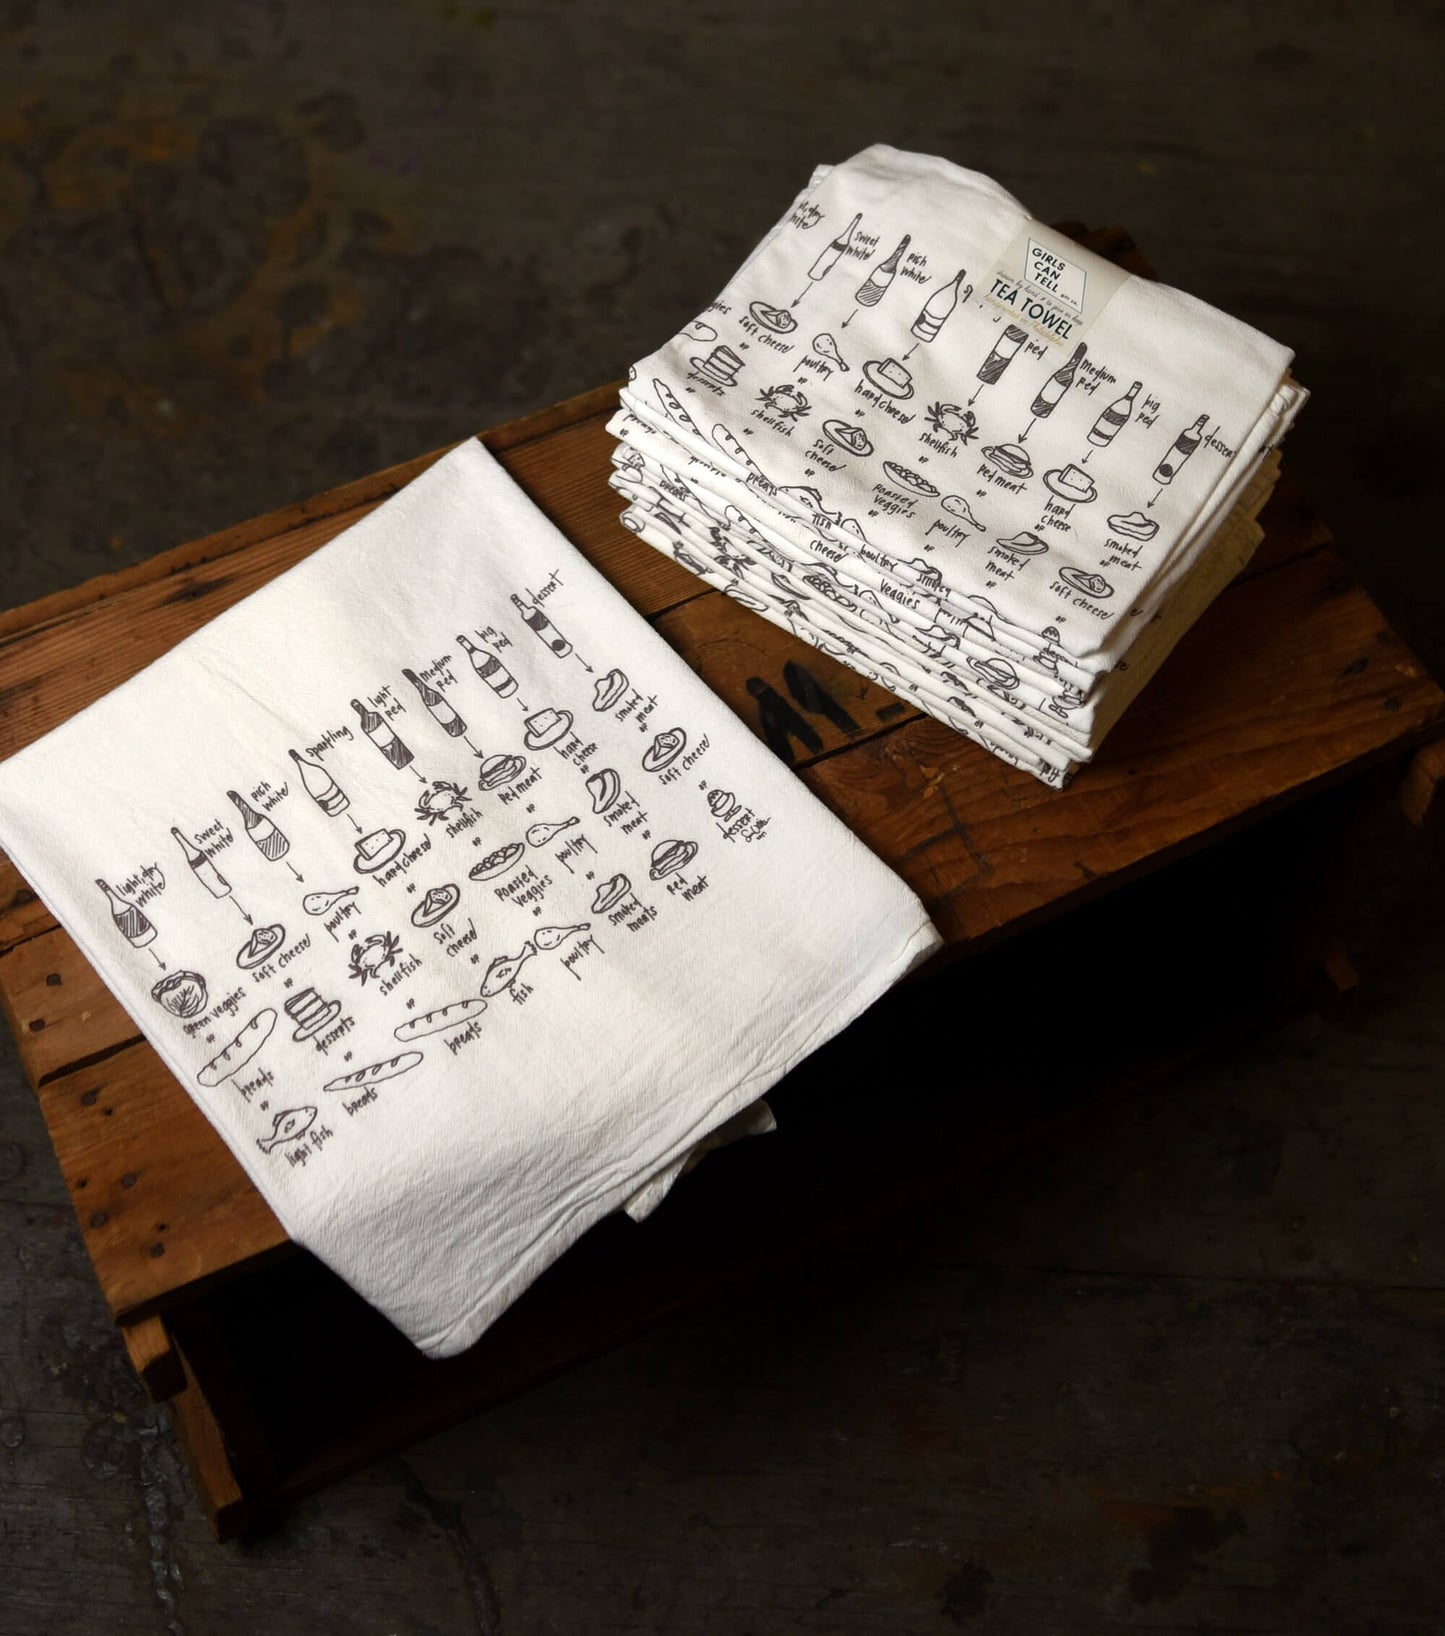 light, dry
white
sweet
white
rich
white
sparkling
light
red
medium
red
big
red
dessert
green veggies
or
breads
or
light fish
soft cheese
or
desserts
or
breads
poultry
or
shellfish
or
breads
hard cheese
or
soft
cheese
or
fish
shellfish
or
roasted
veggies
or
poultry
red meat
or
poultry
or
smoked
meats
hard
cheese
or
smoked
meat
or
red
meat
smoked
meat
or
soft cheese
or
dessert
GIRLS
CAN
TELL
TEA TOWEL
white
sweet
white
rich
white
red
medium
red
big
red
soft cheese
or
desserts
poultry
or
shellfish
hard cheese
or
soft
cheese
shellfish
or
roasted
veggies
or
red meat
or
poultry
or
hard
cheese
or
smoked
meat
or
smoked
meat
or
soft cheese
or
breads
fish
cheese
poultry
veggies